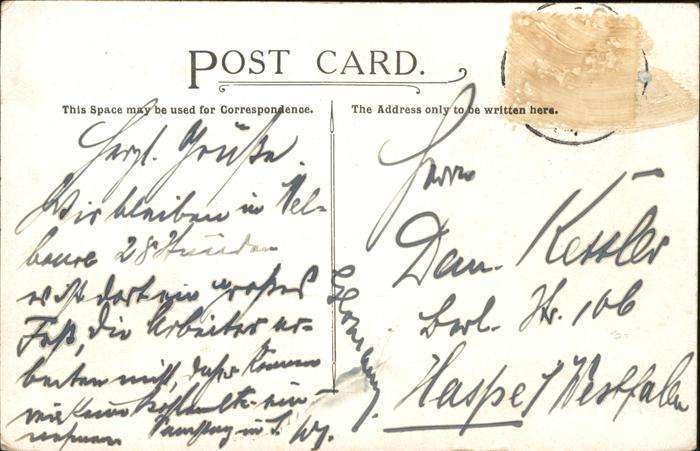 POST CARD.
This Space may be used for Correspondence.
The Address only to be written here.
Herzl. Grüße.
Wir bleiben in Mel-
bourne 28 Stunden
es ist dort ein großes
Fest, die Arbeiter ar-
beiten nicht, daher können
wir keine Kohlen ein-
nehmen Samstag
Herrn
Dan. Kessler
Berl. Str. 106
Haspe / Westfalen